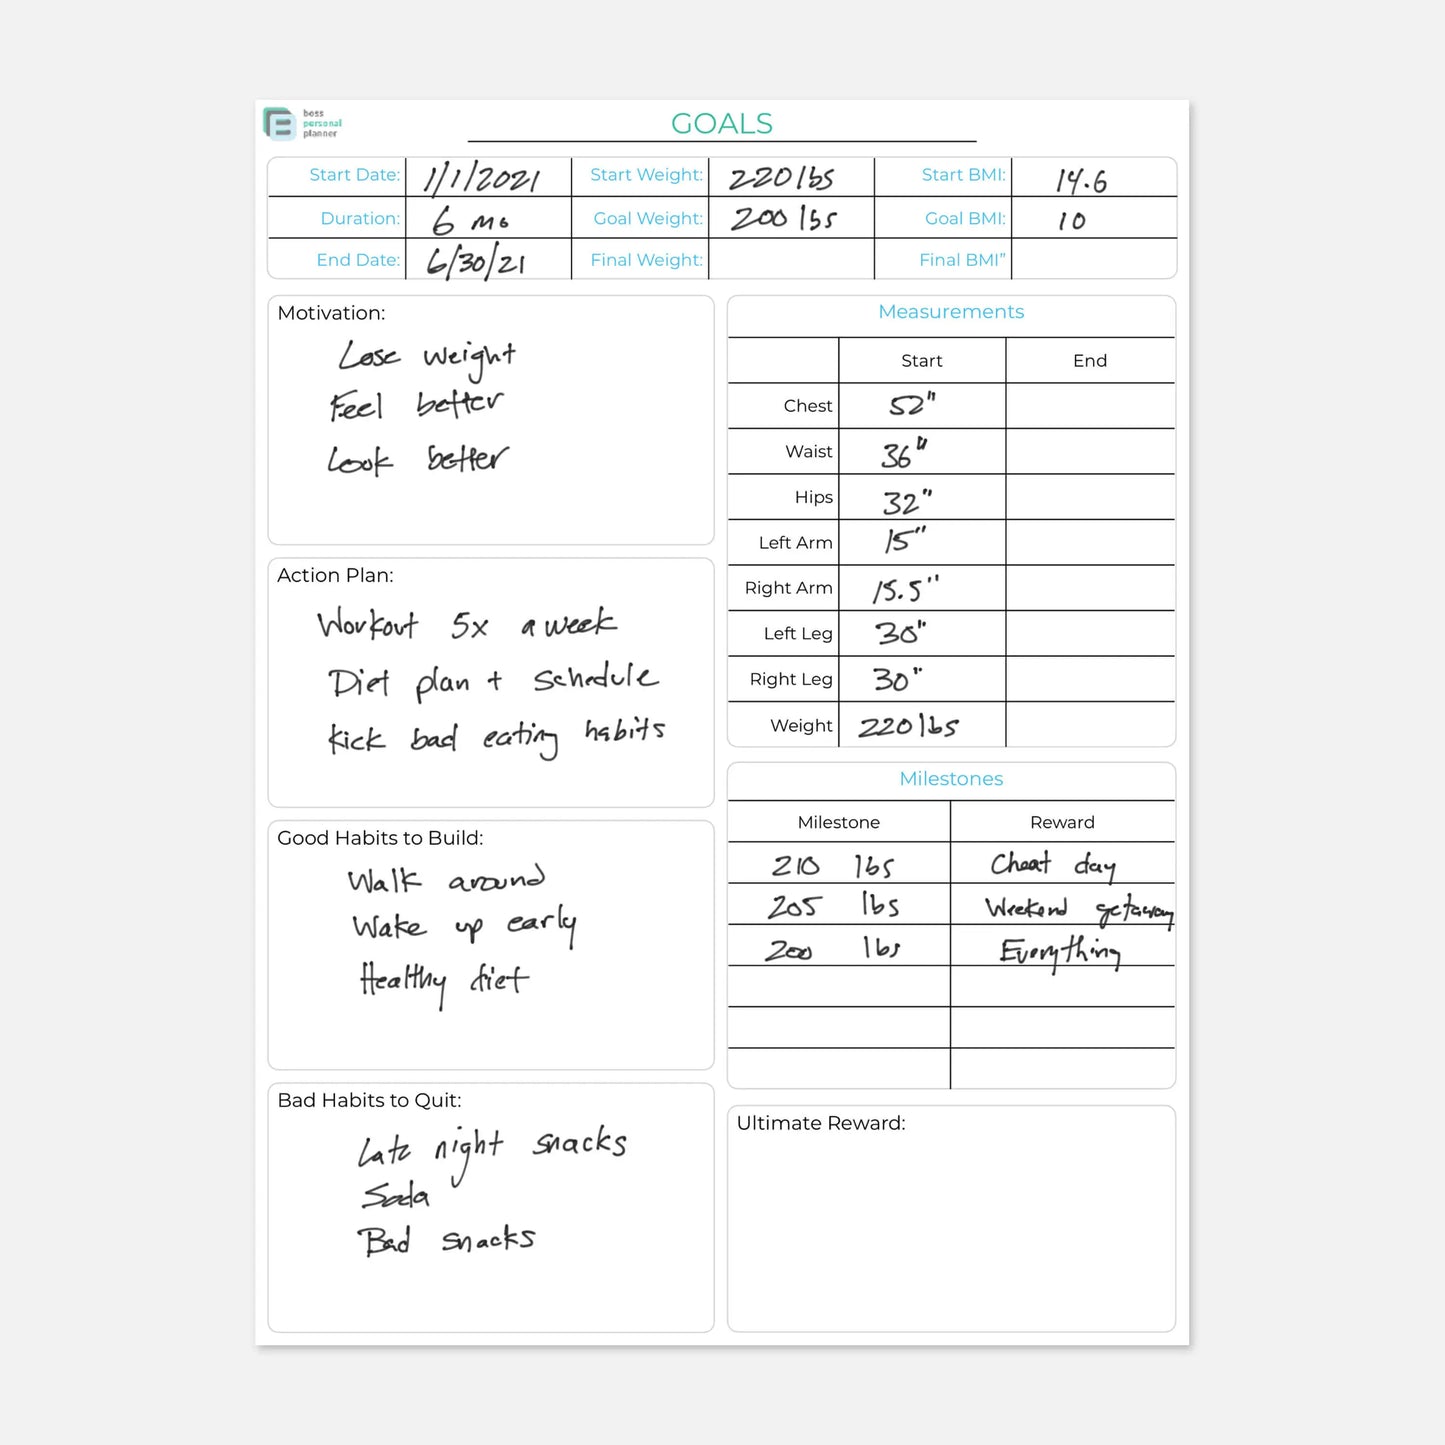 boss
personal
planner
GOALS
Start Date: 1/1/2021 Start Weight: 220 lbs Start BMI: 14.6
Duration: 6 mo Goal Weight: 200 lbs Goal BMI: 10
End Date: 6/30/21 Final Weight: Final BMI”
Motivation:
Lose weight
Feel better
Look better
Action Plan:
Workout 5x a week
Diet plan + schedule
kick bad eating habits
Good Habits to Build:
Walk around
Wake up early
Healthy diet
Bad Habits to Quit:
Late night snacks
Soda
Bad snacks
Measurements
Start End
Chest 52"
Waist 36"
Hips 32"
Left Arm 15"
Right Arm 15.5"
Left Leg 30"
Right Leg 30"
Weight 220 lbs
Milestones
Milestone Reward
210 lbs Cheat day
205 lbs Weekend getaway
200 lbs Everything
Ultimate Reward: